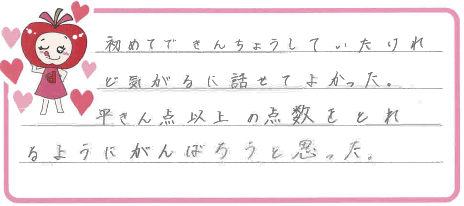 初めてできんちょうしていたけれ
ど気がるに話せてよかった。
平きん点以上の点数をとれ
るようにがんばろうと思った。